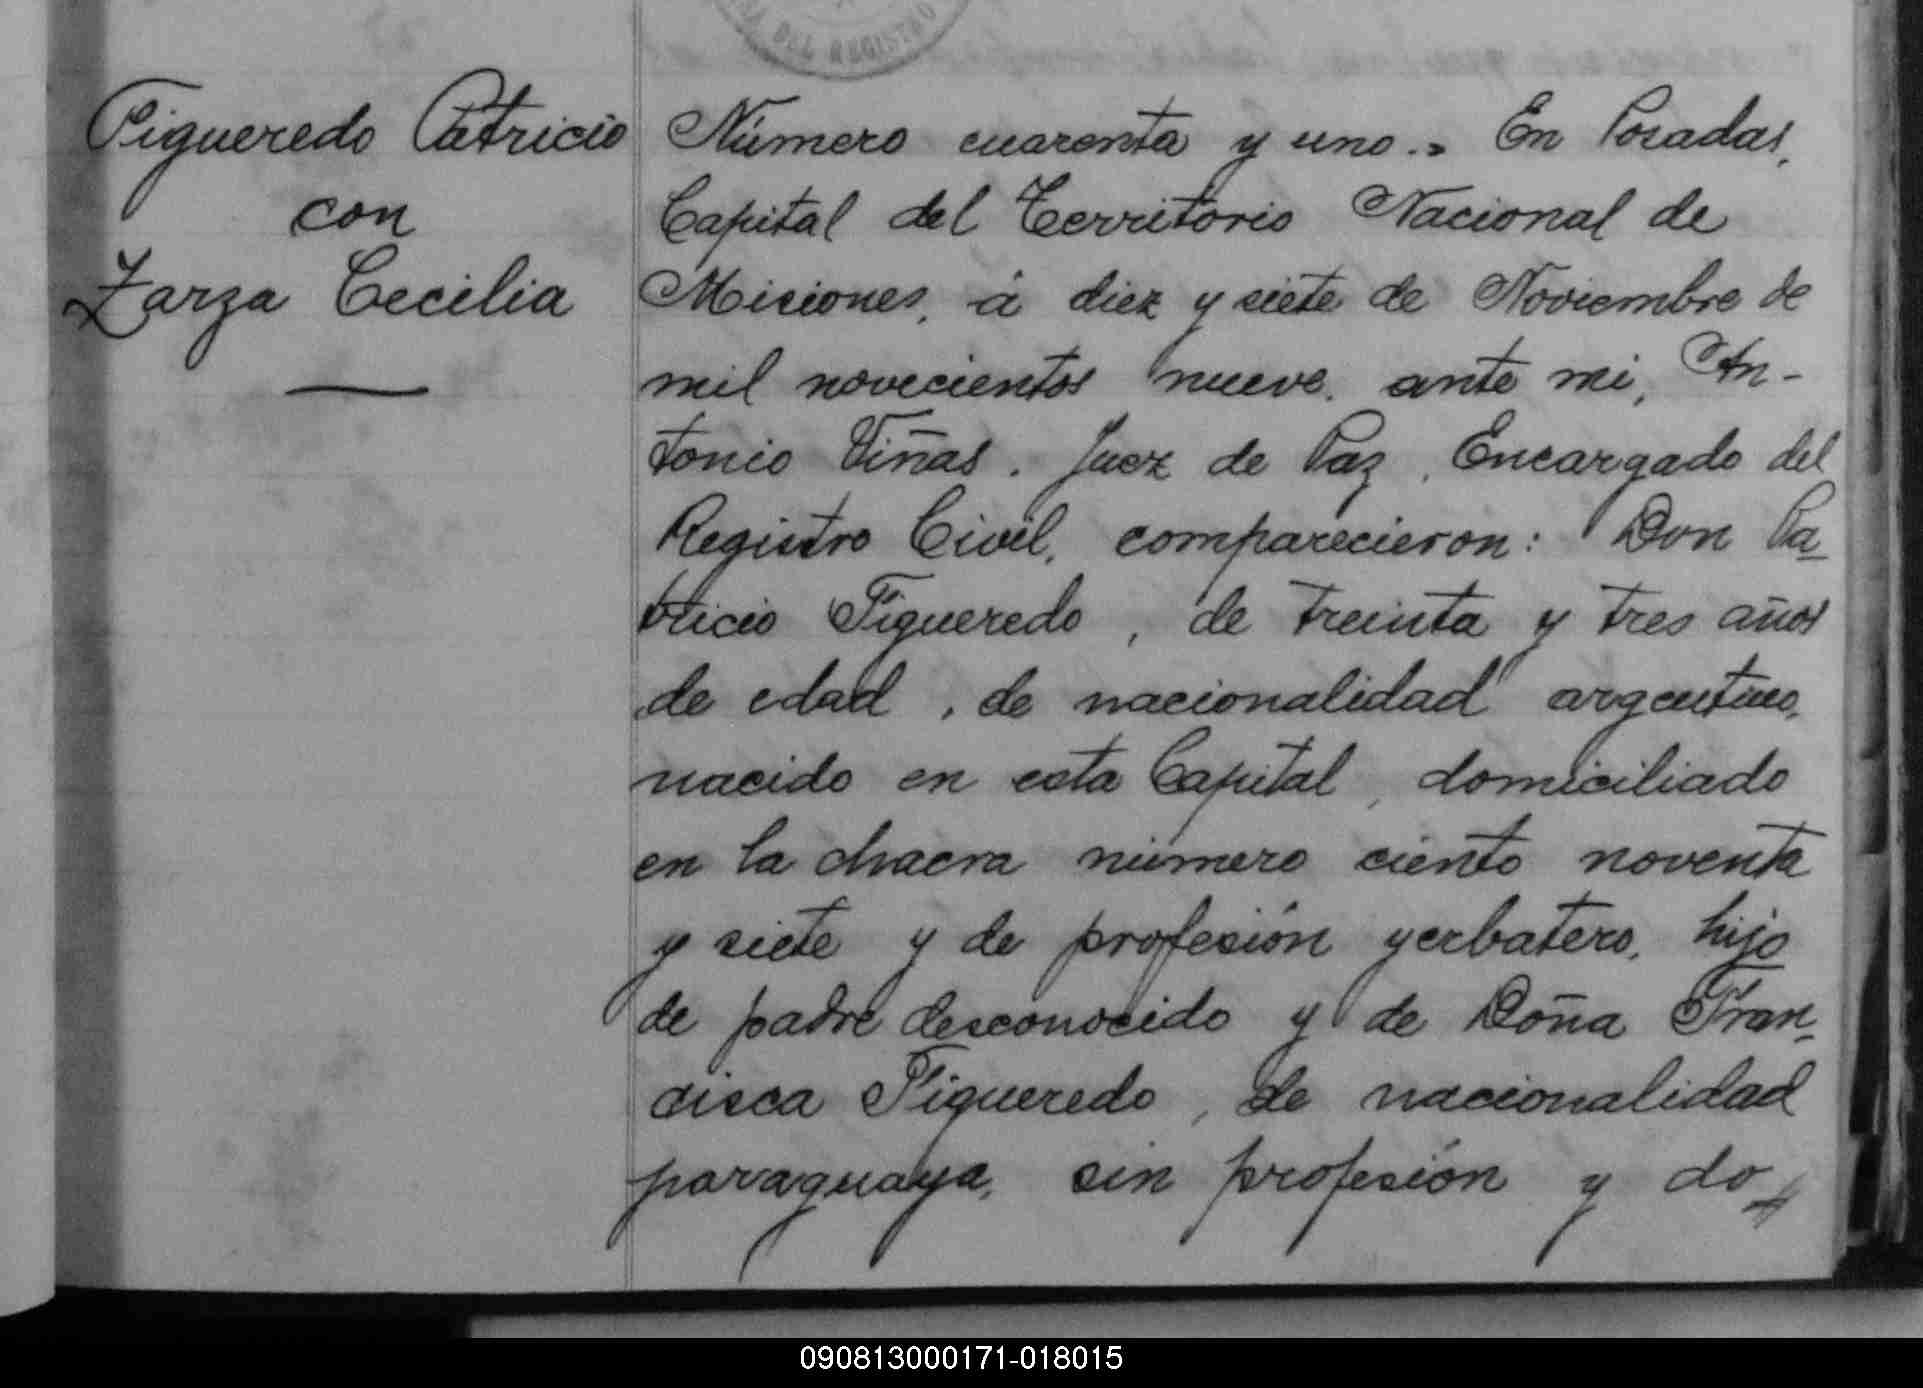 DEL REGISTRO
Figueredo Patricio
con
Zarza Cecilia
Número cuarenta y uno.. En Posadas,
Capital del Territorio Nacional de
Misiones, á diez y siete de Noviembre de
mil novecientos nueve, ante mi, An-
tonio Viñas, Juez de Paz, Encargado del
Registro Civil, comparecieron: Don Pa-
tricio Figueredo, de treinta y tres años
de edad, de nacionalidad argentino,
nacido en esta Capital, domiciliado
en la chacra número ciento noventa
y siete y de profesión yerbatero, hijo
de padre desconocido y de Doña Fran-
cisca Figueredo, de nacionalidad
paraguaya, sin profesión y do
090813000171-018015